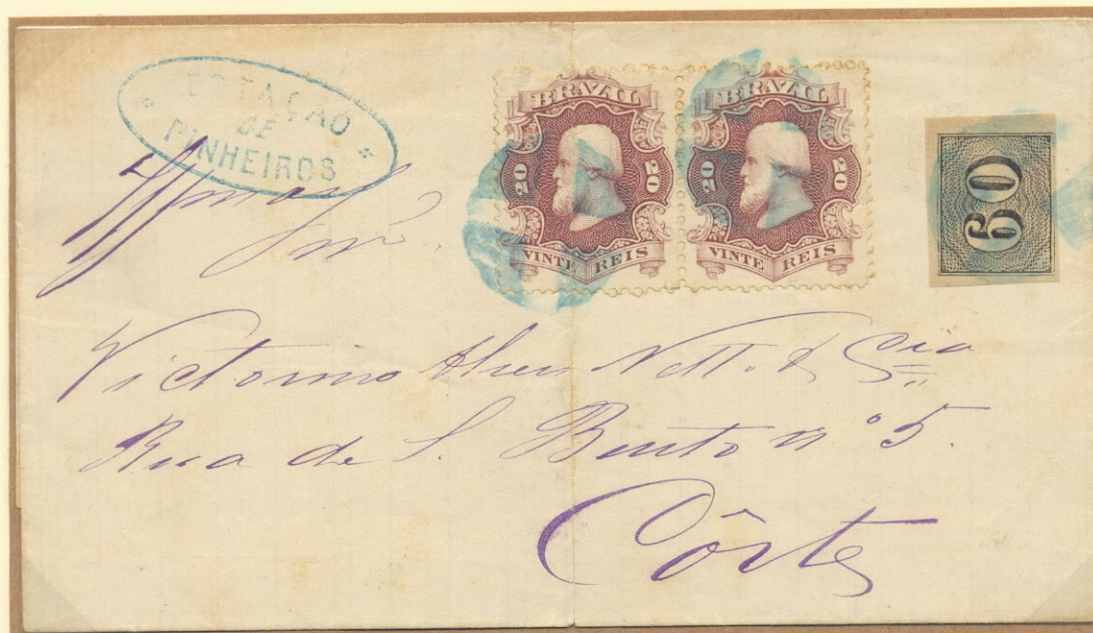 ESTAÇÃO
DE
PINHEIROS
BRAZIL
20 20
VINTE REIS
BRAZIL
20 20
VINTE REIS
60
Snr.
Victorino Alves Nett. & Cia
Rua de S. Bento nº 5.
Côrte